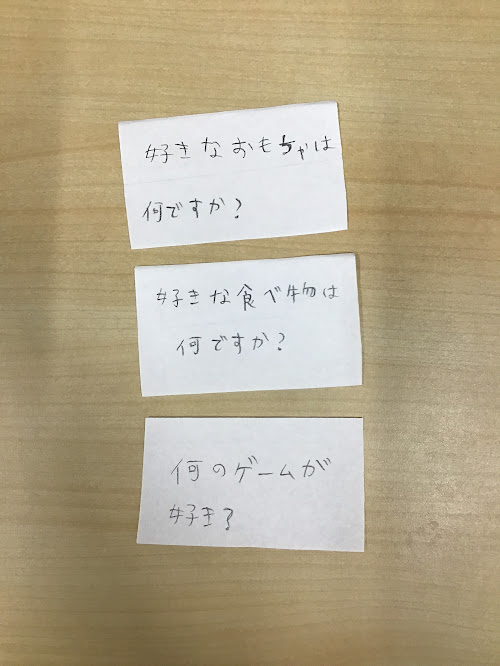 好きなおもちゃは
何ですか?
好きな食べ物は
何ですか?
何のゲームが
好き?